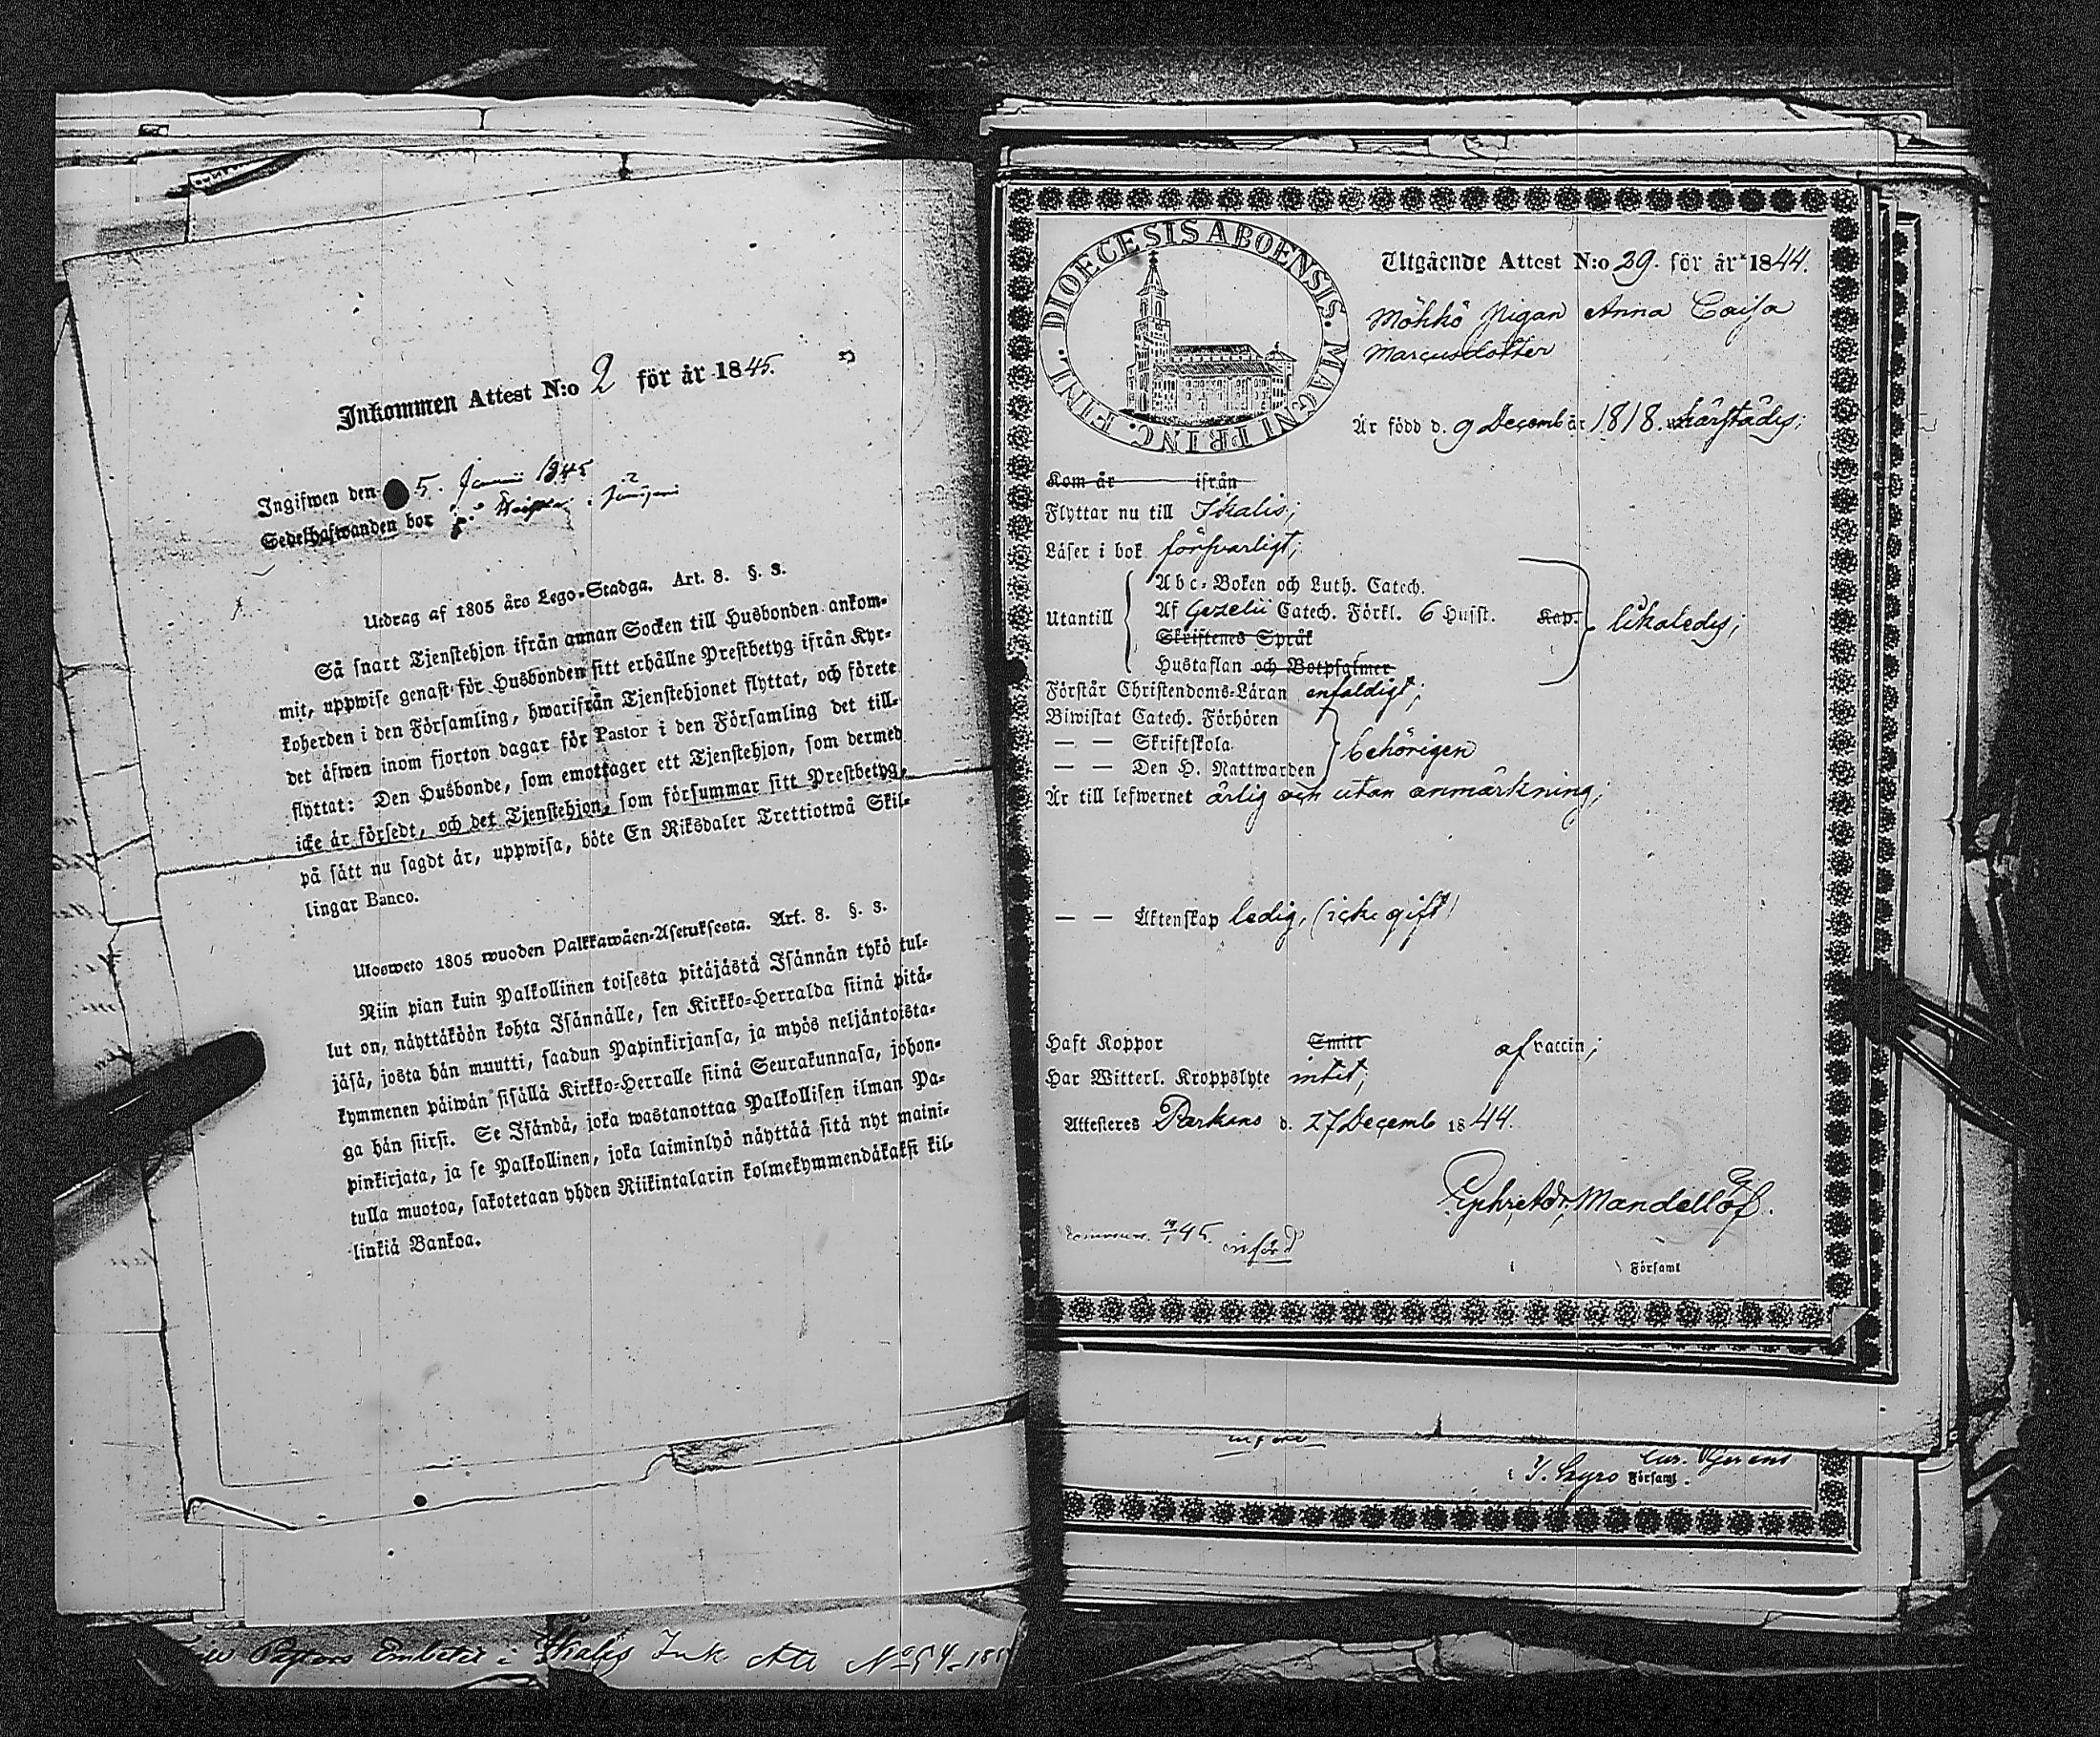 Inkommen Attest N:o 2 för år 1845.
Ingifwen den 5. Januii 1845
Sedelhafwanden bor
Utdrag af 1805 års Lego-Stadga. Art. 8. §. 3.
Så snart Tjenstehjon ifrån annan Socken till Husbonden ankom-
mit, uppwise genast för Husbonden sitt erhållne Prestbetyg ifrån Kyr-
koherden i den Församling, hwarifrån Tjenstehjonet flyttat, och förete
det äfwen inom fjorton dagar för Pastor i den Församling det till-
flyttat: Den Husbonde, som emottager ett Tjenstehjon, som dermed
icke är försedt, och det Tjenstehjon, som försummar sitt Prestbetyg,
på sätt nu sagdt är, uppwisa, böte En Riksdaler Trettiotwå Skil-
lingar Banco.
Ulosweto 1805 wuoden Palkkawäen-Asetuksesta. Art. 8. §. 3.
Niin pian kuin Palkollinen toisesta pitäjästä Isännän tykö tul-
lut on, näyttäköön kohta Isännälle, sen Kirkko-Herralda siinä pitä-
jäsä, josta hän muutti, saadun Papinkirjansa, ja myös neljäntoista-
kymmenen päiwän sisällä Kirkko-Herralle siinä Seurakunnasa, johon-
ga hän siirsi. Se Isändä, joka wastanottaa Palkollisen ilman Pa-
pinkirjata, ja se Palkollinen, joka laiminlyö näyttää sitä nyt maini-
tulla muotoa, sakotetaan yhden Riikintalarin kolmekymmendäkaksi kil-
linkiä Bankoa.
Pastors Embetet i Ikalis Ink. Att No 54
DIOECESIS ABOENSIS. MAGNI PRINC. FINL.
Utgående Attest N:o 29. för år 1844.
Möhkö Pigan Anna Caisa
Marcusdotter
Är född d. 9 Decemb år 1818. härstädes;
Kom år ifrån
Flyttar nu till Ikalis;
Läser i bok försvarligt;
Utantill
Abc-Boken och Luth. Catech.
Af Gezelii Catech. Förkl. 6 Husst. Kap.
Skriftenes Språk
Hustaflan och Botpsalmer
likaledes;
Förstår Christendoms-Läran enfaldigt;
Biwistat Catech. Förhören
— — Skriftskola
— — Den H. Nattwarden
behörigen
Är till lefwernet ärlig och utan anmärkning;
— — Äktenskap ledig, (icke gift)
Haft Koppor Smitt af vaccin;
Har Witterl. Kroppslyte intet;
Attesteres Parkano d. 27 Decemb 1844.
Mandellöf.
45. införd
i Församl
införd
i Församl.